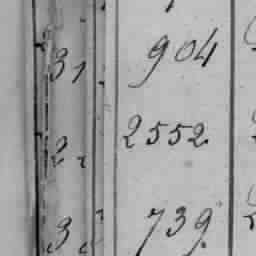 31 904
2 2552
3 739